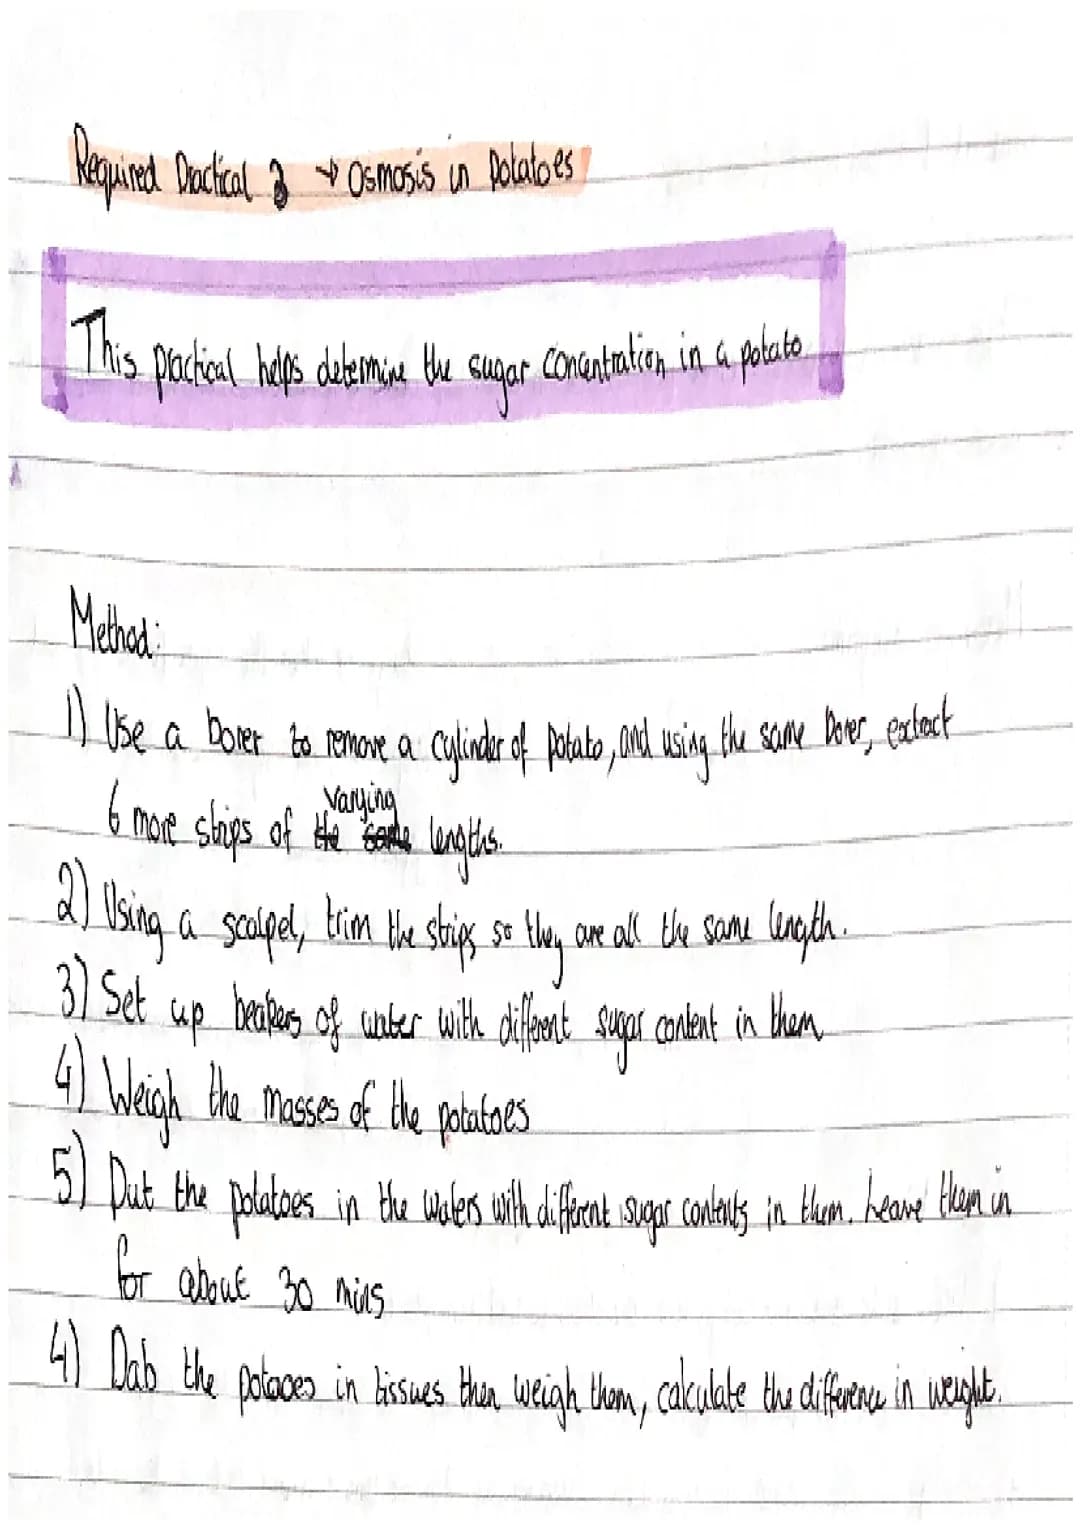 Required Practical 2 → Osmosis in Potatoes
This practical helps determine the sugar concentration in a potato
Method:
1) Use a borer to remove a cylinder of potato, and using the same borer, extract
6 more strips of the same varying lengths.
2) Using a scalpel, trim the strips so they are all the same length.
3) Set up beakers of water with different sugar content in them
4) Weigh the masses of the potatoes
5) Put the potatoes in the waters with different sugar contents in them. Leave them in
for about 30 mins
4) Dab the potatoes in tissues then weigh them, calculate the difference in weight.